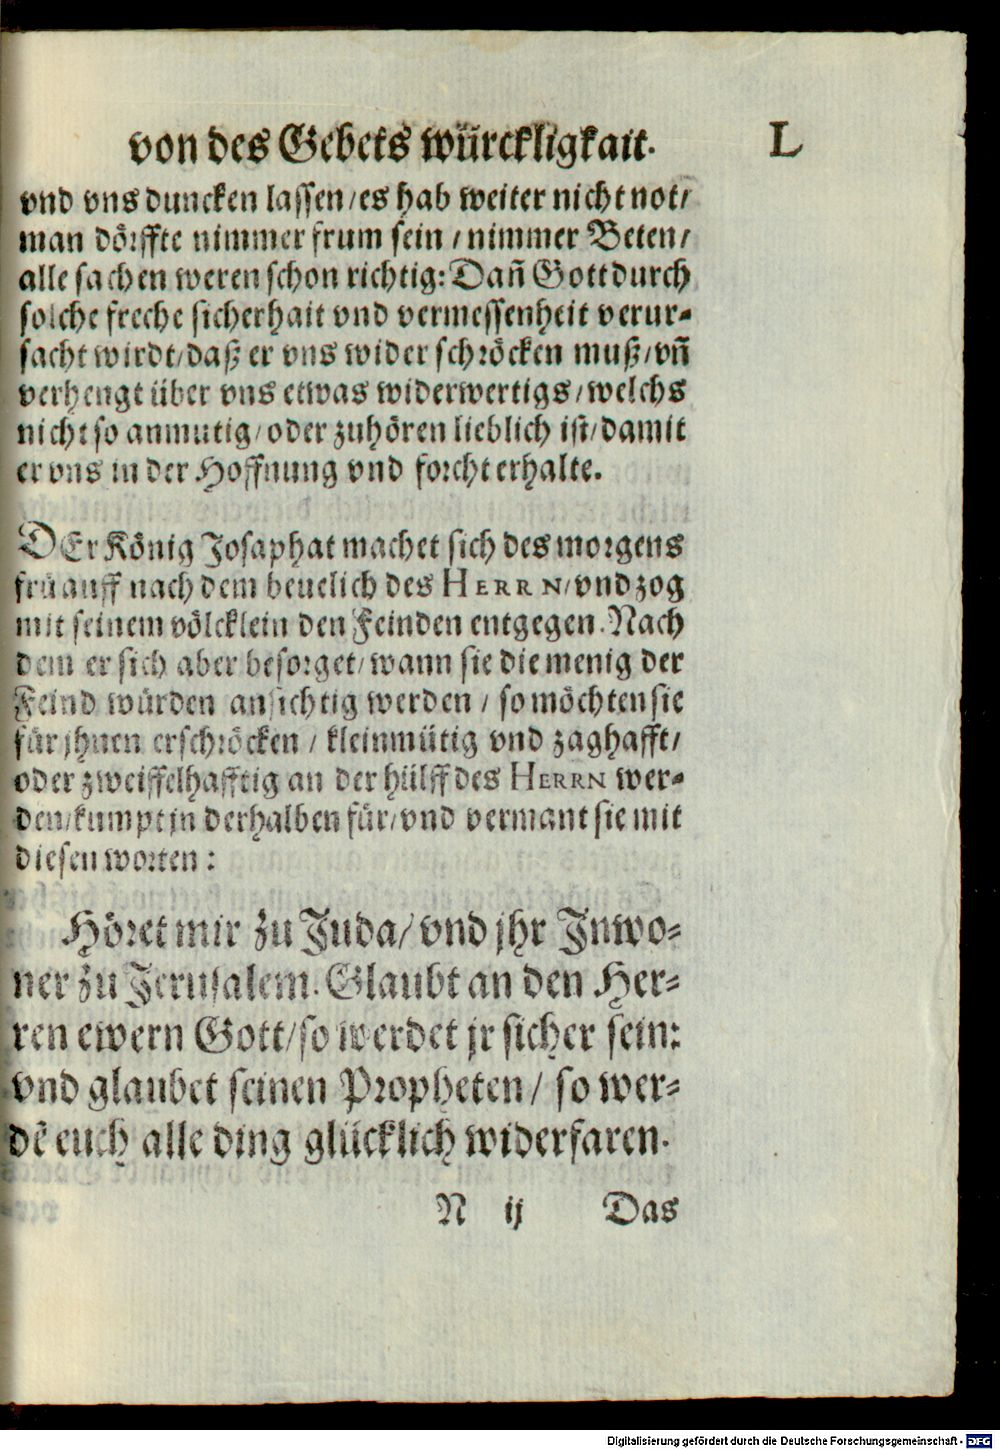 von des Gebets würckligkait. L
vnd vns duncken lassen/es hab weiter nicht not/
man dörffte nimmer frum sein/nimmer Beten/
alle sachen weren schon richtig: Dañ Gott durch
solche freche sicherhait vnd vermessenheit verur-
sacht wirdt/daß er vns wider schröcken muß/vñ
verhengt über vns etwas widerwertigs/welchs
nicht so anmutig/oder zuhören lieblich ist/damit
er vns in der Hoffnung vnd forcht erhalte.
DEr König Josaphat machet sich des morgens
frü auff nach dem beuelich des HERRN/vnd zog
mit seinem völcklein den Feinden entgegen. Nach
dem er sich aber besorget/wann sie die menig der
Feind würden ansichtig werden/so möchten sie
für jhnen erschröcken/kleinmütig vnd zaghafft/
oder zweiffelhafftig an der hülff des HERRN wer-
den/kumpt jn derhalben für/vnd vermant sie mit
diesen worten:
Höret mir zu Juda/vnd jhr Inwo-
ner zu Jerusalem. Glaubt an den Her-
ren ewern Gott/so werdet jr sicher sein:
vnd glaubet seinen Propheten/so wer-
dẽ euch alle ding glücklich widerfaren.
N ij Das
Digitalisierung gefördert durch die Deutsche Forschungsgemeinschaft - DFG